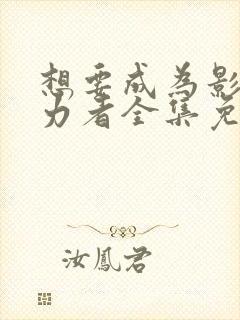 想要成为影
力者全集免
汝鳳君